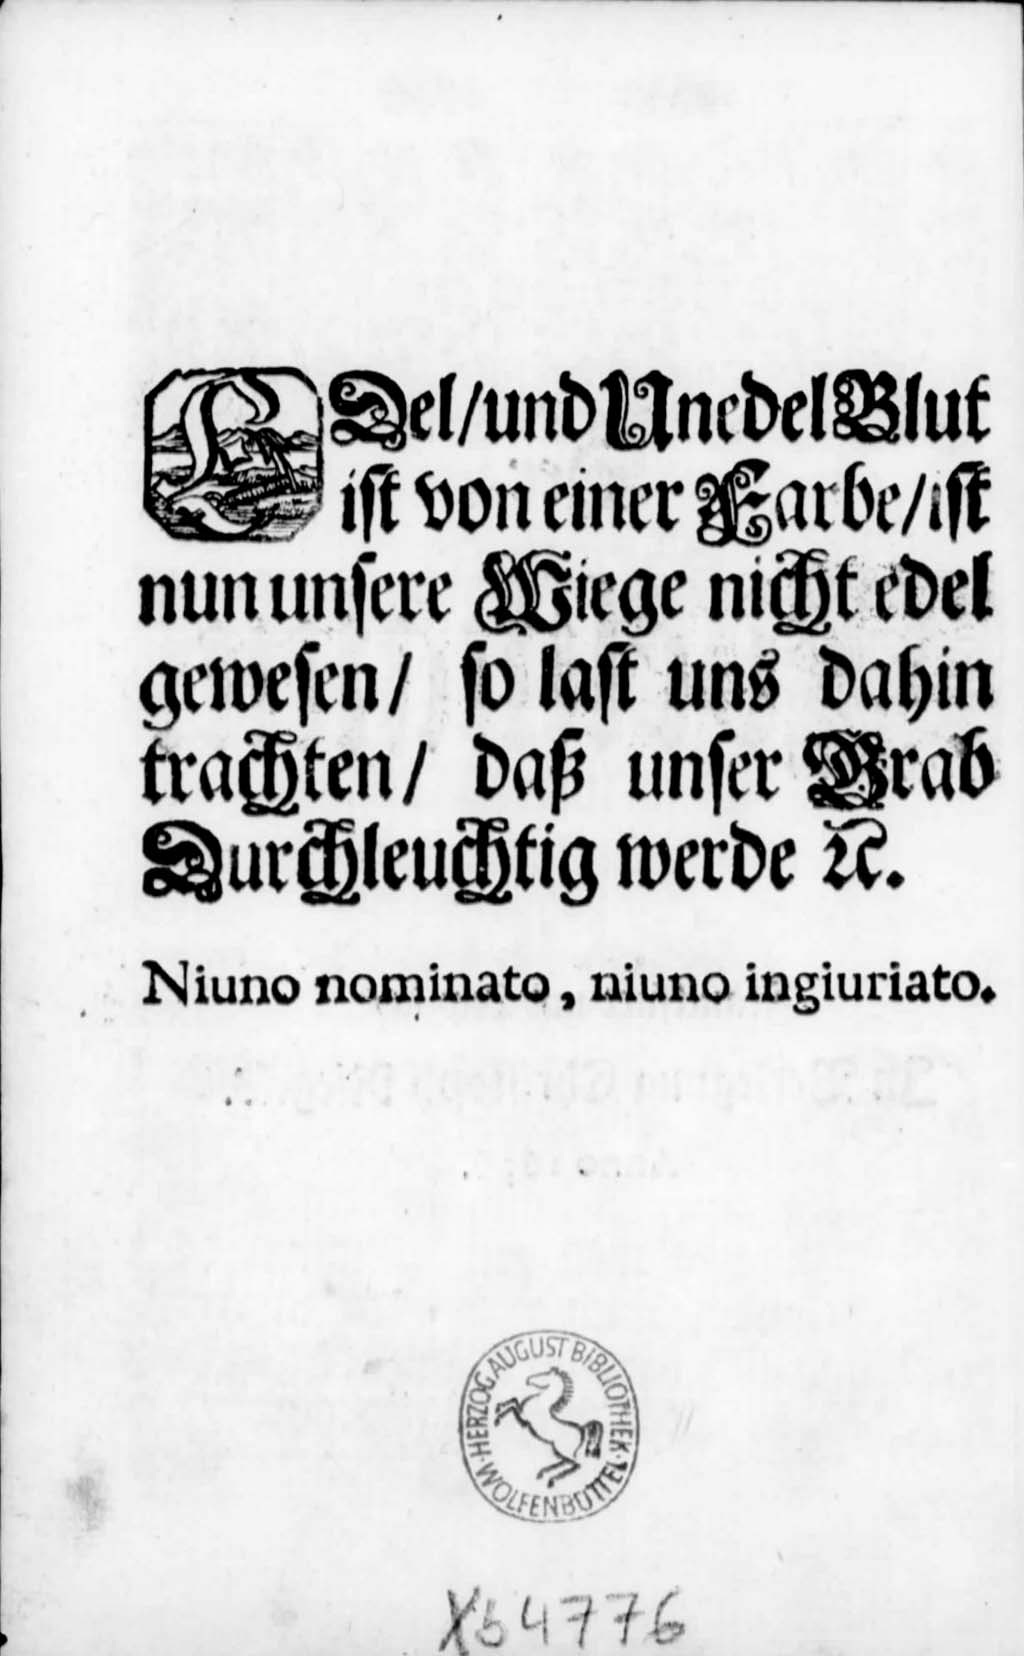 EDel/und Unedel Blut
ist von einer Farbe/ist
nun unsere Wiege nicht edel
gewesen/ so last uns dahin
trachten/ daß unser Grab
Durchleuchtig werde ꝛc.
Niuno nominato, niuno ingiuriato.
HERZOG AUGUST BIBLIOTHEK
WOLFENBÜTTEL
Xb 4776